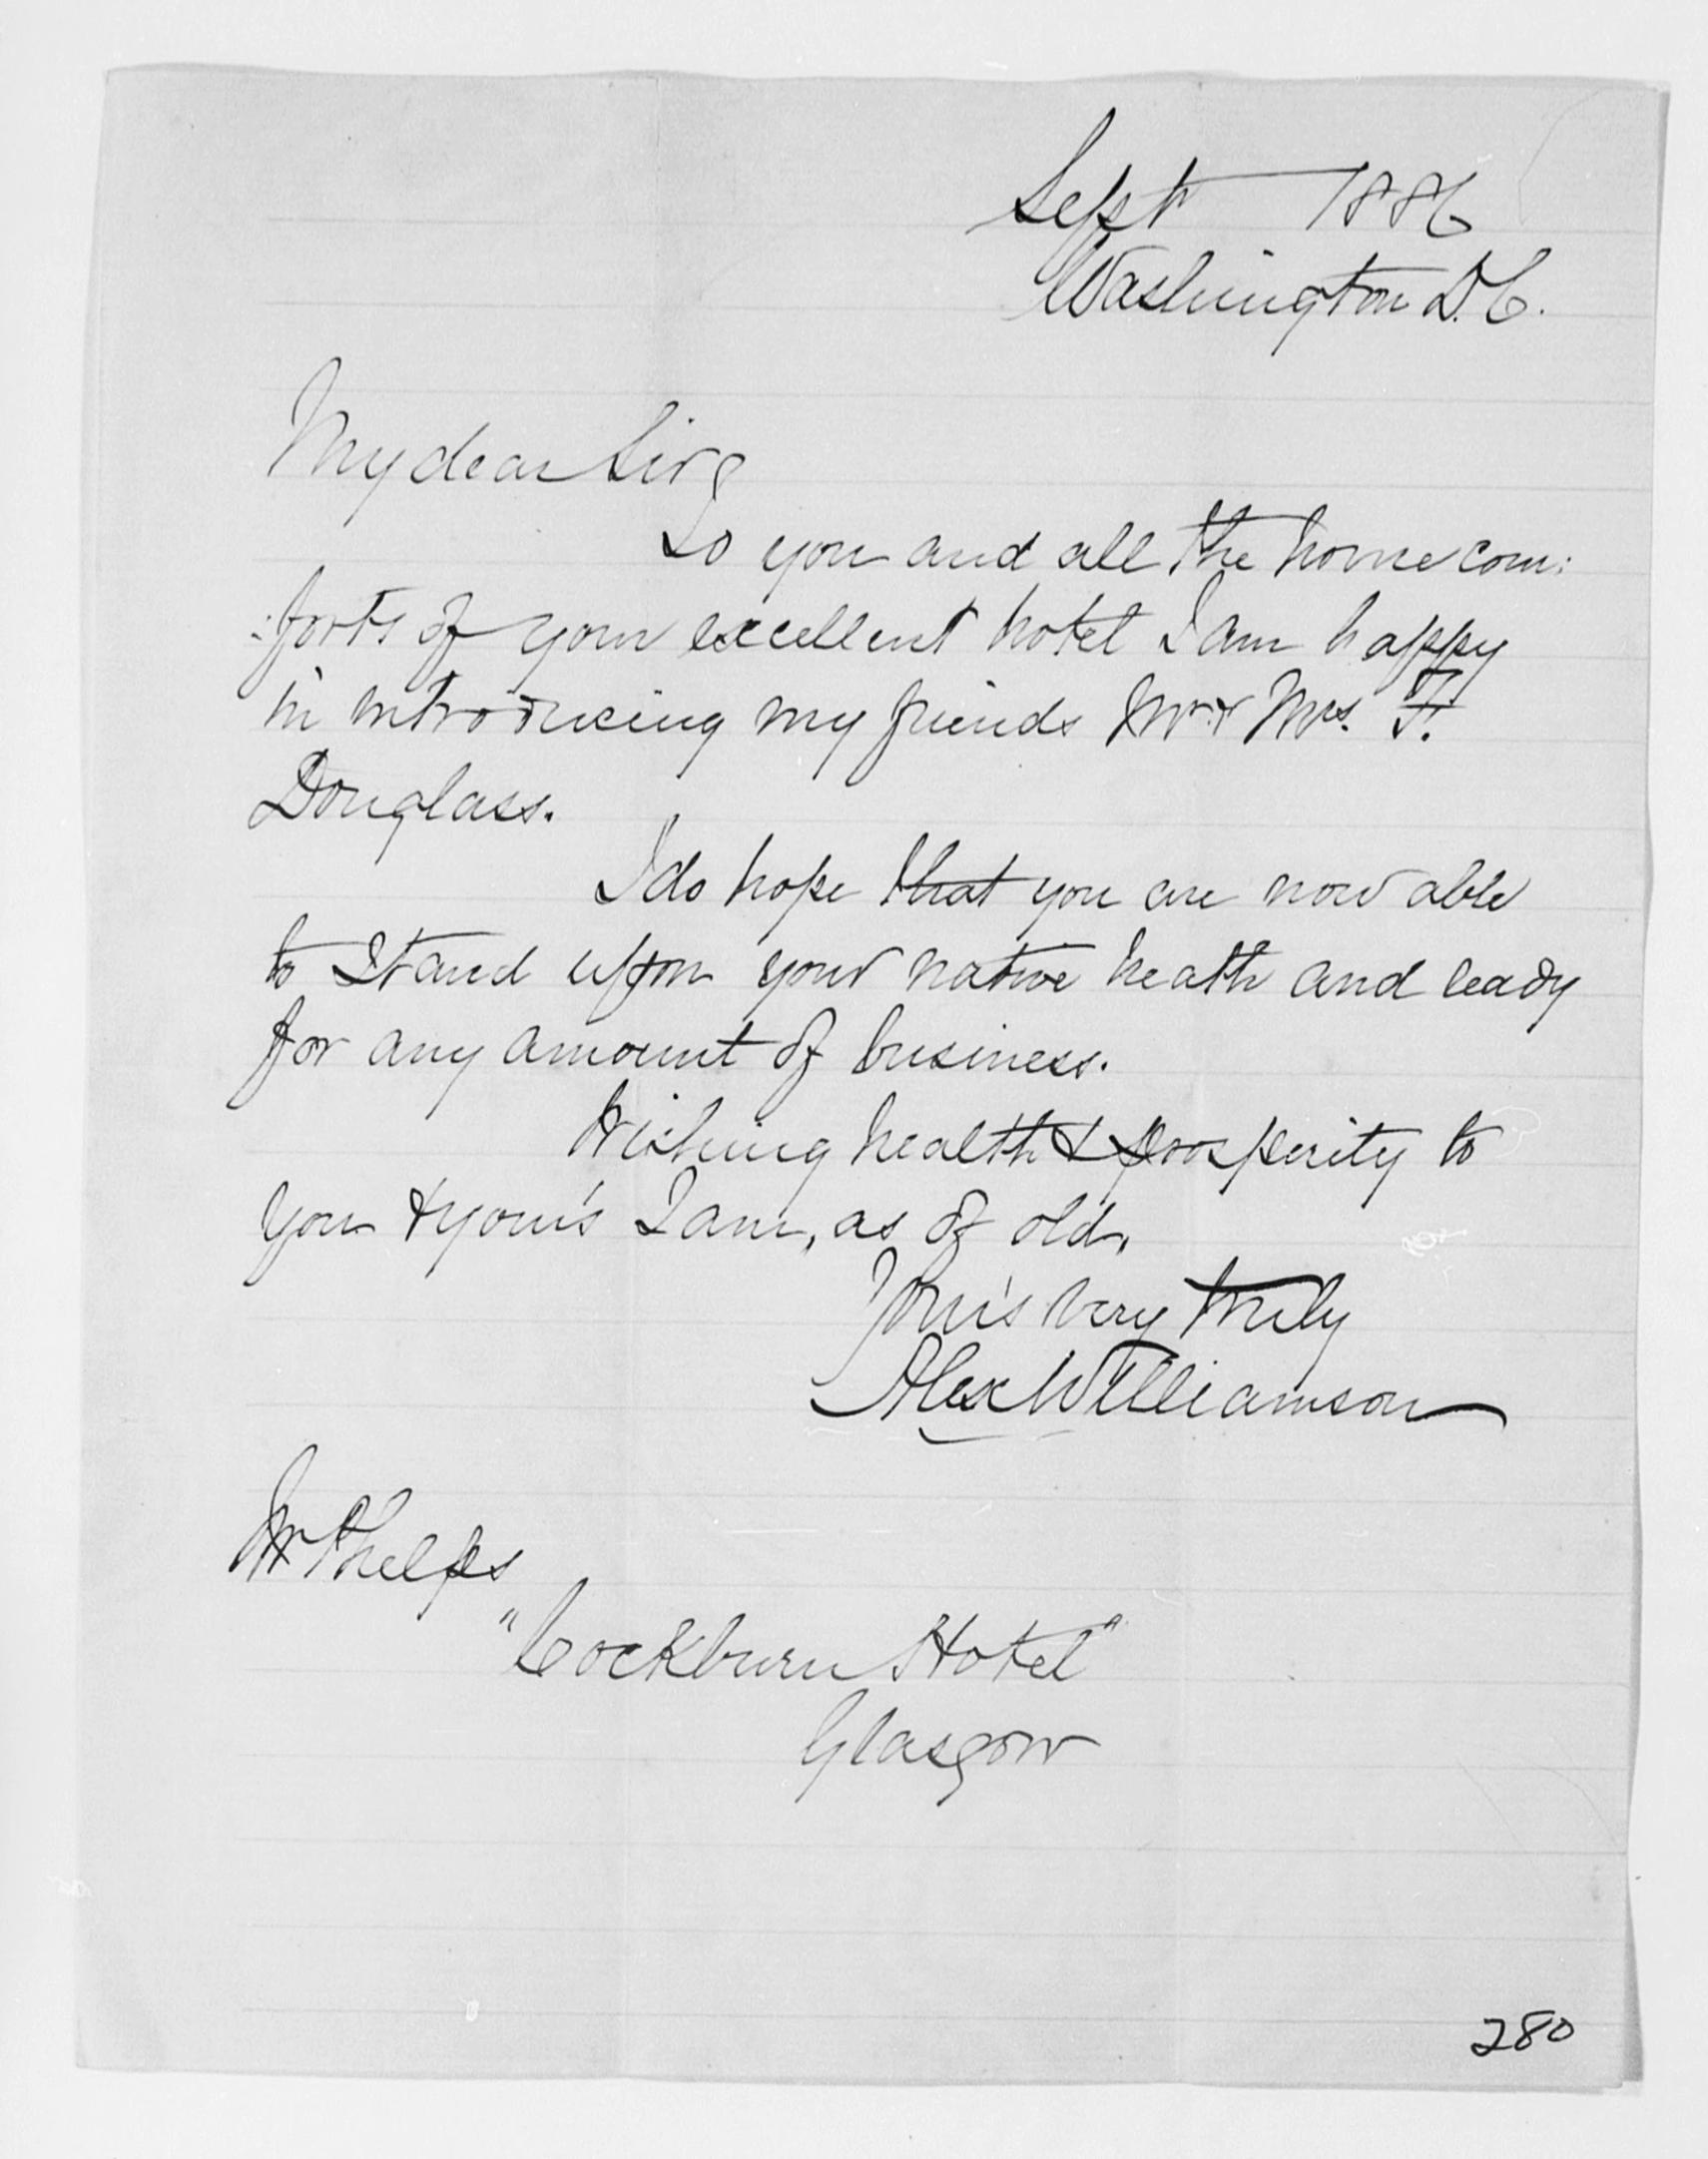 Sept 1886
Washington D.C.
My dear Sir,
To you and all the home com:
:forts of your excellent hotel I am happy
in introducing my friends Mr & Mrs. F.
Douglass.
I do hope that you are now able
to stand upon your native heath and ready
for any amount of business.
Wishing health & prosperity to
you & your's I am, as of old,
Your's very truly
Alex Williamson
Mr Phelps
"Cockburn Hotel"
Glasgow
280